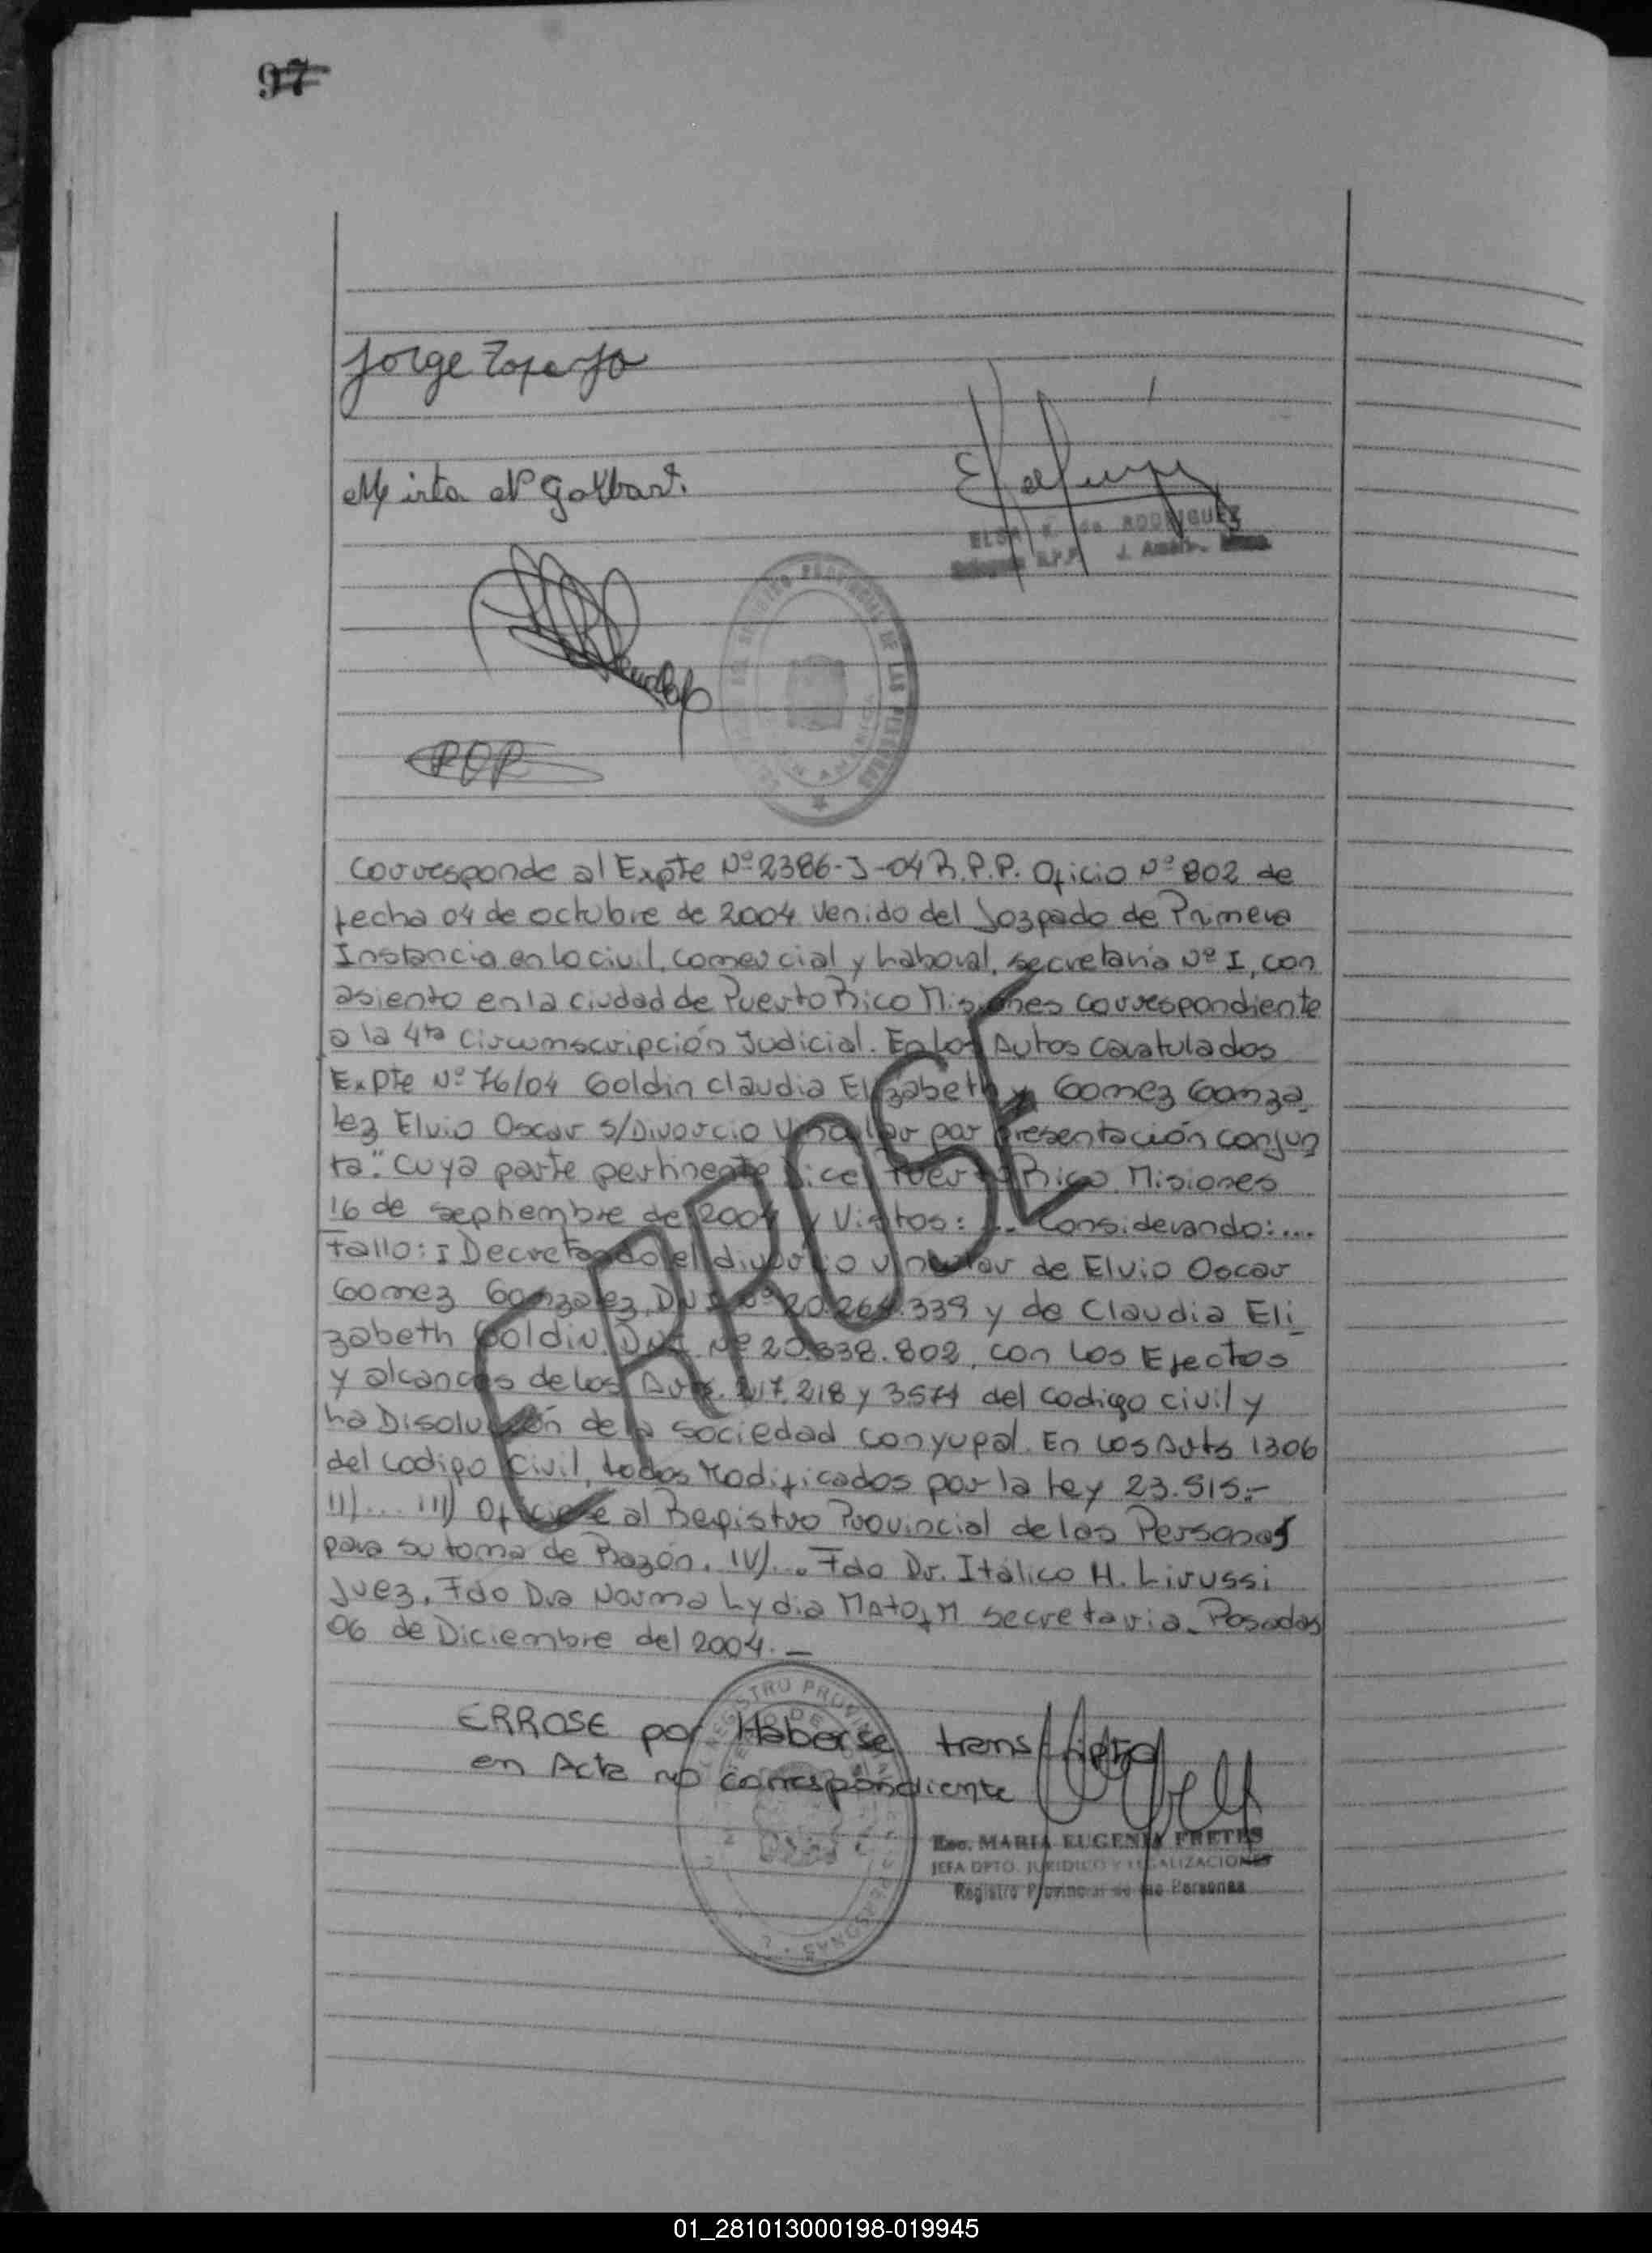 97
Jorge
Mirta N
ELSA K. de RODRIGUEZ
R.P.P. J. Amér.
REGISTRO PROVINCIAL DE LAS PERSONAS
Corresponde al Expte Nº 2386-J-04 R.P.P. Oficio Nº 802 de
fecha 04 de octubre de 2004 venido del Jozgado de Primera
Instancia en lo civil, comercial y Laboral, secretaria Nº I, con
asiento en la ciudad de Puerto Rico Misiones correspondiente
a la 4ta Circunscripción Judicial. En los Autos caratulados
Expte Nº 76/04 Goldin Claudia Elizabeth y Gomez Gonza
lez Elvio Oscar s/Divorcio Vincular por presentación conjun
ta". Cuya parte pertinente dice: Puerto Rico, Misiones
16 de septiembre de 2004 y Vistos: ... Considerando:....
Fallo: I Decretando el divorcio vincular de Elvio Oscar
Gomez Gonzalez, DNI Nº 20.264.339 y de Claudia Eli
zabeth Goldin, DNI Nº 20.338.802, con los Efectos
y alcances de los Arts. 217, 218 y 3574 del codigo civil y
La Disolución de la sociedad conyugal. En los Arts 1306
del codigo Civil, todos Modificados por la Ley 23.515.-
II)... III) Oficiese al Registro Provincial de las Personas
para su toma de Razón. IV)... Fdo Dr. Itálico H. Lirussi
Juez. Fdo Dra Norma Lydia secretaria. Posadas
06 de Diciembre del 2004. —
ERROSE
ERROSE por Haberse transcripto
en Acta no correspondiente
Esc. MARIA EUGENIA FRETES
JEFA DPTO. JURIDICO Y LEGALIZACIONES
Registro Provincial de las Personas
REGISTRO PROVINCIAL PERSONAS
01_281013000198-019945